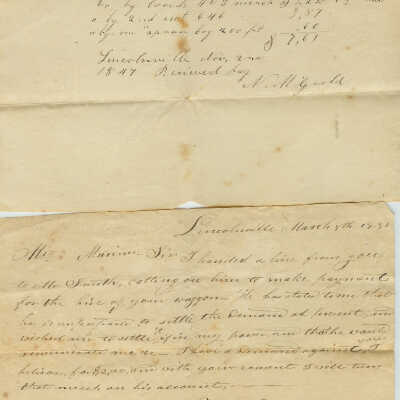 by 2nd 646 3,87
200 ft .60
$ 7,61
Lincolnville Nov, 2nd
1847 Received Pay
N. M. Gould
Lincolnville March 9th 1838
Mr. Sir I handed a line from you
to Mr Smith, calling on him to make payment
for the hire of your waggon. He has stated to me that
he is to settle the demand at present, and
wished me to settle if in my power and that he would
remunerate me. I have a demand against you
I believe, for $2,00, and with your consent I will turn
that much on his account.